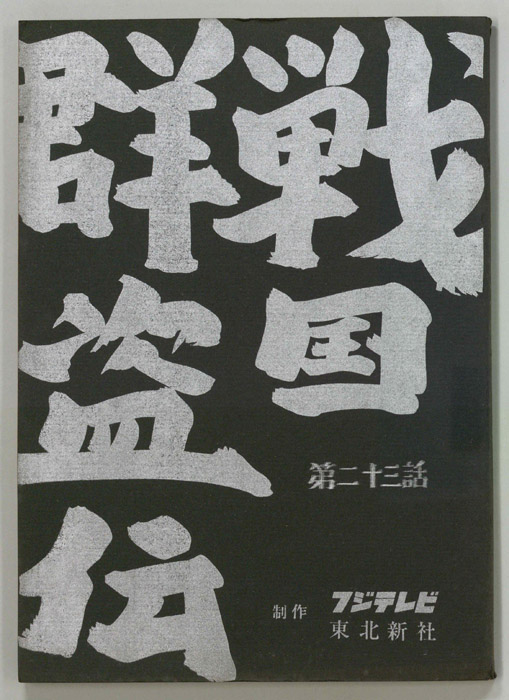 戦国
群盗伝
第二十三話
制作 フジテレビ
東北新社